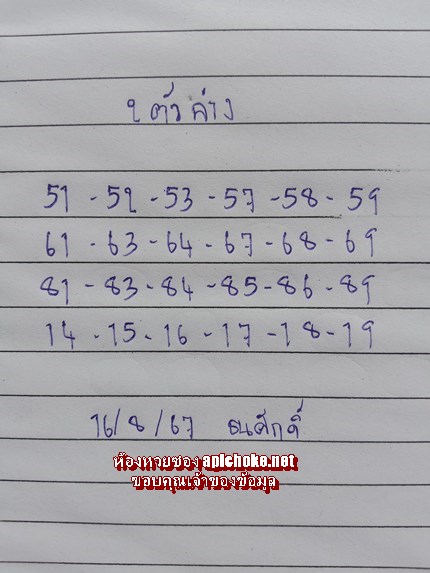 2 ตัวล่าง
51 - 52 - 53 - 57 - 58 - 59
61 - 63 - 64 - 67 - 68 - 69
81 - 83 - 84 - 85 - 86 - 89
14 - 15 - 16 - 17 - 18 - 19
16/8/67 ธนศักดิ์
ห้องหวยซอง apichoke.net
ขอบคุณเจ้าของข้อมูล